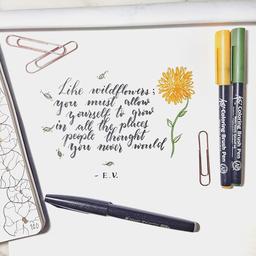 Like wildflowers;
you must allow
yourself to grow
in all the places
people thought
you never would
- E.V.
Koi Coloring Brush Pen
Koi Coloring Brush Pen